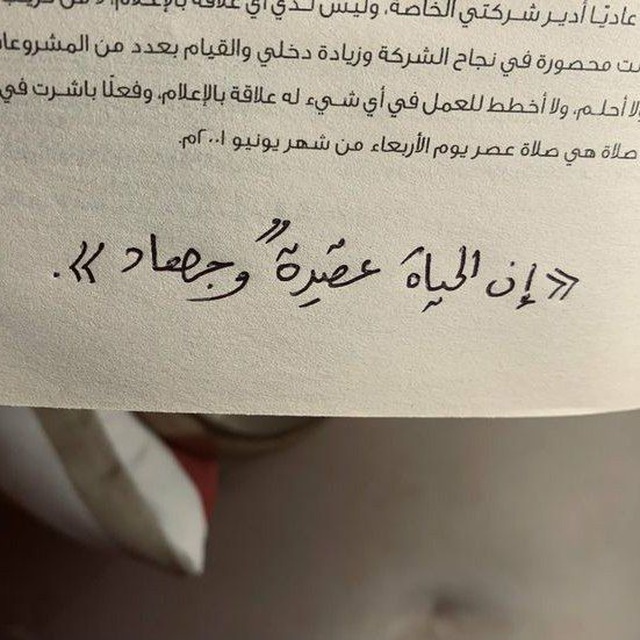 عاديًا أدير شركتي الخاصة، وليس لدي أي علاقة بالإعلام، لا من
ت محصورة في نجاح الشركة وزيادة دخلي والقيام بعدد من المشروعا
لا أحلم، ولا أخطط للعمل في أي شيء له علاقة بالإعلام، وفعلًا باشرت في
صلاة هي صلاة عصر يوم الأربعاء من شهر يونيو ٢٠٠١م.
«إن الحياة عقيدةٌ وجهاد».